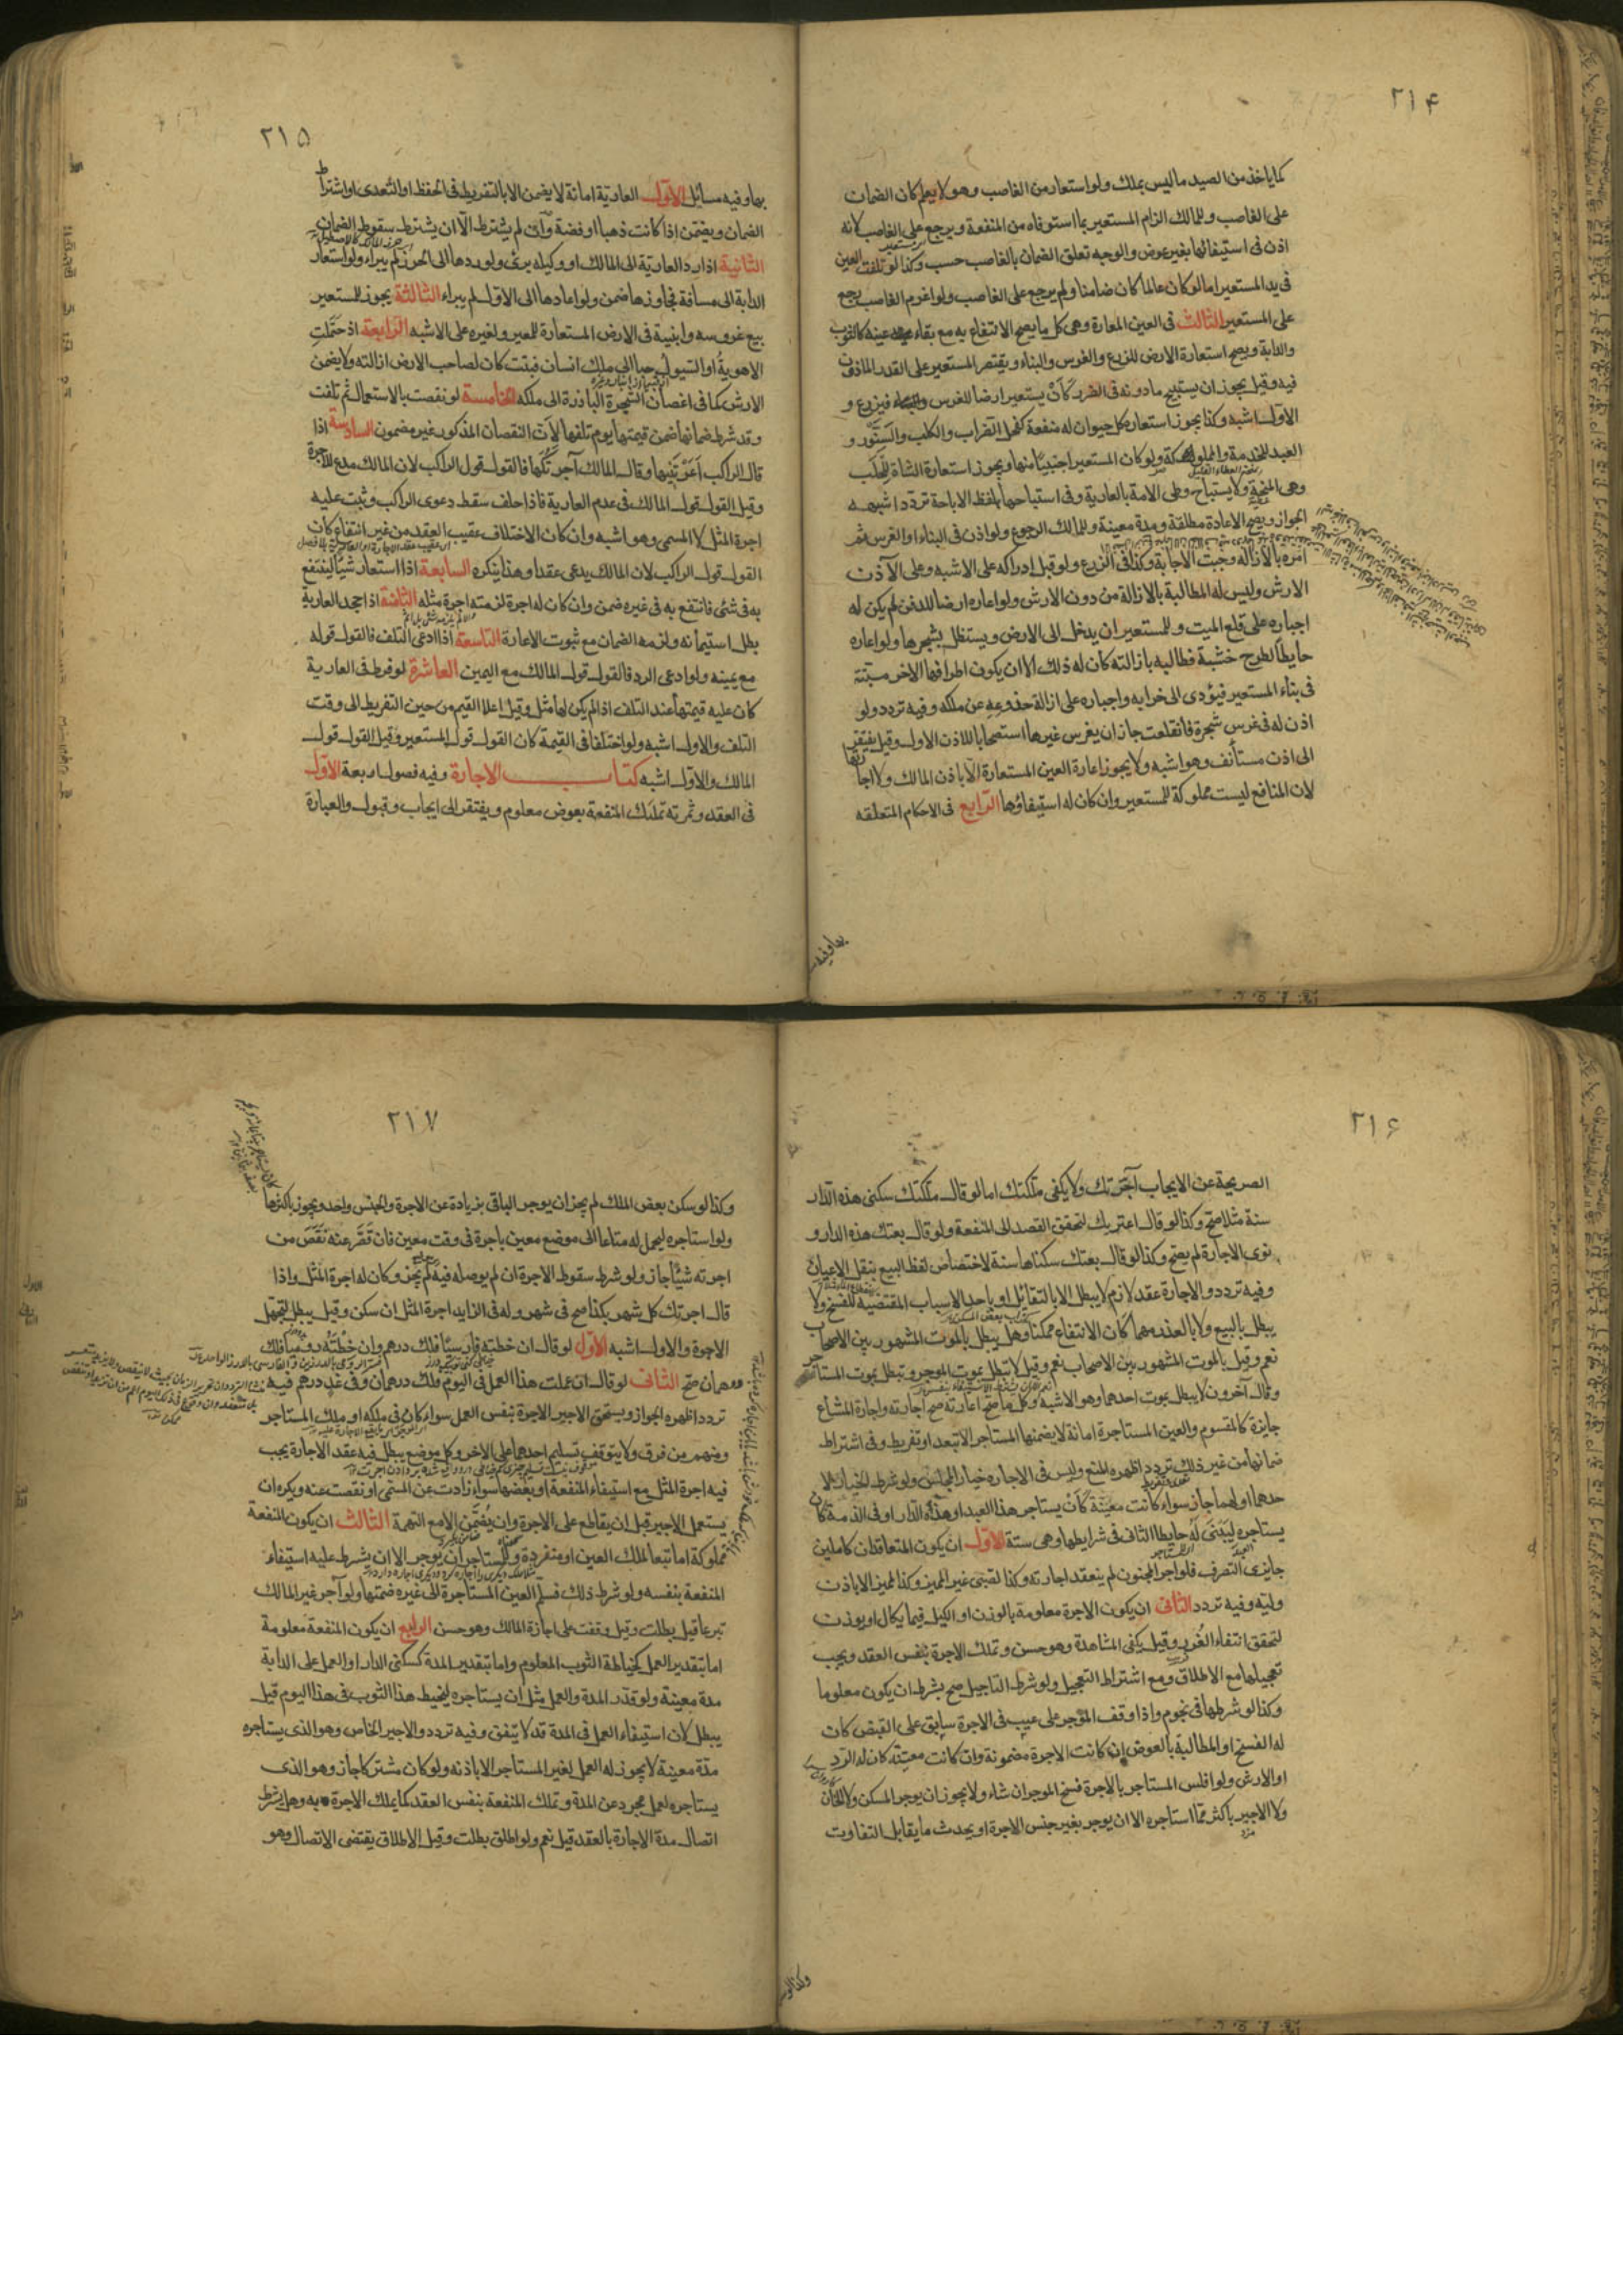 ۲۱۴
كما ياخذ من الصيد ما ليس بملك ولو استعار من الغاصب وهو لا يعلم كان الضمان
على الغاصب وللمالك الزام المستعير بما استوفاه من المنفعة ويرجع على الغاصب لانه
اذن فى استيفائها بغير عوض والوجه تعلق الضمان بالغاصب حسب وكذا لو تلفت العين
فى يد المستعير اما لو كان عالما كان ضامنا ولم يرجع على الغاصب ولو اغرم الغاصب يرجع
على المستعير الثالث فى العين المعارة وهى كل ما يصح الانتفاع به مع بقاء عينه كالثوب
والدابة ويصح استعارة الارض للزرع والغرس والبناء ويقتصر المستعير على القدر الماذون
فيه وقيل يجوز ان يستبيح ما دونه فى الضرر كأن يستعير ارضا للغرس فيزرع و
الاول اشبه وكذا يجوز استعارة كل حيوان له منفعة كفحل الضراب والكلب والسنّور و
العبد للخدمة والمملوكة ولو كان المستعير اجنبيّا منها ويجوز استعارة الشاة للحلَب
وهى المنحة ولا يستباح وطى الامة بالعارية وفى استباحتها بلفظ الاباحة تردّد اشبهه
الجواز ويصح الاعادة مطلقة ومدة معينة وللمالك الرجوع ولو اذن فى البناء او الغرس ثم
امره بالازالة وجبت الاجابة وكذا فى الزرع ولو قبل ادراكه على الاشبه وعلى الآذن
الارش وليس له المطالبة بالازالة من دون الارش ولو اعاره ارضا للدفن لم يكن له
اجباره على قلع الميت وللمستعير ان يدخل الى الارض ويستظل بشجرها ولو اعاره
حايطا لطرح خشبة فطالبه بازالته كان له ذلك الا ان يكون اطرافها الاخر مبتنة
فى بناء المستعير فيؤدى الى خرابه واجباره على ازالة جذوعه عن ملكه وفيه تردد ولو
اذن له فى غرس شجرة فانقلعت جاز ان يغرس غيرها استصحابا للاذن الاول وقيل يفتقر
الى اذن مستأنف وهو اشبه ولا يجوز اعارة العين المستعارة الّا باذن المالك ولا اجارتها
لان المنافع ليست مملوكة للمستعير وان كان له استيفاؤها الرّابع فى الاحكام المتعلقه
بها وفيه
۲۱۵
بها وفيه مسائل الاوّل العاريّة امانة لا يضمن الا بالتفريط فى الحفظ او التّعدى او اشتراط
الضمان ويضمن اذا كانت ذهبا او فضة وان لم يشترط الّا ان يشترط سقوط الضمان
الثانية اذا ردّ العاريّة الى المالك او وكيله برئ ولو ردها الى الحرز لم يبراء ولو استعار
الدابة الى مسافة فجاوزها ضمن ولو اعادها الى الاول لم يبراء الثالثة يجوز للمستعير
بيع غروسه وابنية فى الارض المستعارة للمعير ولغيره على الاشبه الرّابعة اذ حَمَلتِ
الاهويةُ او السّيولُ حبا الى ملك انسان فنبتت كان لصاحب الارض ازالته ولا يضمن
الارش كما فى اغصان الشجرة البارزة الى ملكه الخامسة لو نقصت بالاستعمال ثم تلفت
وقد شرط ضمانها ضمن قيمتها يوم تلفها لأنّ النقصان المذكور غير مضمون السادسة اذا
قال الراكب اَعَرْتَنيها وقال المالك آجرتُكَها فالقول قول الراكب لان المالك مدع للاجرة
وقيل القول قول المالك فى عدم العارية فاذا حلف سقط دعوى الراكب وثبت عليه
اجرة المثل لا المسمى وهو اشبه وان كان الاختلاف عقيب العقد من غير انتفاع كان
القول قول الراكب لان المالك يدعى عقدا وهذا ينكره السابعة اذا استعار شيئا لينتفع
به فى شئ فانتفع به فى غيره ضمن وان كان له اجرة لزمته اجرة مثله الثامنة اذا جحد العارية
بطل استيمانه ولزمه الضمان مع ثبوت الاعارة التاسعة اذا ادعى التلف فالقول قوله
مع يمينه ولو ادعى الرد فالقول قول المالك مع اليمين العاشرة لو فرط فى العارية
كان عليه قيمتها عند التلف اذا لم يكن لها مثل وقيل اعلا القيم من حين التفريط الى وقت
التلف والاول اشبه ولو اختلفا فى القيمة كان القول قول المستعير وقيل القول قول
المالك والاول اشبه كتاب الاجارة وفيه فصول اربعة الاوّل
فى العقد وثمرته تملّك المنفعة بعوض معلوم ويفتقر الى ايجاب وقبول والعبارة
۲۱۶
الصريحة عن الايجاب آجرتك ولا يكفى ملكتك اما لو قال ملكتك سكنى هذه الدّار
سنة مثلا صح وكذا لو قال اعرتك لتحقق القصد الى المنفعة ولو قال بعتك هذه الدار و
نوى الاجارة لم يصح وكذا لو قال بعتك سكناها سنة لاختصاص لفظ البيع بنقل الاعيان
وفيه تردد والاجارة عقد لازم لا يبطل الا بالتقائل او باحد الاسباب المقتضية للفسخ ولا
يبطل بالبيع ولا بالعذر مهما كان الانتفاع ممكنا وهل يبطل بالموت المشهور بين الاصحاب
نعم وقيل بالموت المشهور بين الاصحاب نعم وقيل لا تبطل بموت الموجر وتبطل بموت المستاجر
وقال آخرون لا يبطل بموت احدهما وهو الاشبه وكل ما صحّ اعارته صح اجارته واجارة المشاع
جايزة كالمقسوم والعين المستاجرة امانة لا يضمنها المستاجر الا بتعد او تفريط وفى اشتراط
ضمانها من غير ذلك تردد اظهره المنع وليس فى الاجارة خيار المجلس ولو شرط الخيار لا
حدهما او لهما جاز سواء كانت معيّنة كأن يستاجر هذا العبد او هذه الدّار او فى الذمة كان
يستاجره ليبنى له حايطا الثانى فى شرايطها وهى ستة الاول ان يكون المتعاقدان كاملين
جايزى التصرف فلو اجر المجنون لم ينعقد اجارته وكذا لصبى غير المميز وكذا المميز الا باذن
وليه وفيه تردد الثانى ان يكون الاجرة معلومة بالوزن او الكيل فيما يكال او يوزن
لتحقق انتفاء الغرر وقيل يكفى المشاهدة وهو حسن وتملك الاجرة بنفس العقد ويجب
تعجيلها مع الاطلاق ومع اشتراط التعجيل ولو شرط التاجيل صح بشرط ان يكون معلوما
وكذا لو شرطها فى نجوم واذا وقف المؤجر على عيب فى الاجرة سابق على القبض كان
له الفسخ او المطالبة بالعوض ان كانت الاجرة مضمونة وان كانت معيّنة كان له الردّ
او الارش ولو افلس المستاجر بالاجرة فسخ الموجر ان شاء ولا يجوز ان يوجر المسكن ولا الخان
ولا الاجير باكثر ممّا استاجره الا ان يوجر بغير جنس الاجرة او يحدث ما يقابل التفاوت
۲۱۷
وكذا لو سكن بعض الملك لم يجز ان يوجر الباقى بزيادة عن الاجرة والجنس واحد ويجوز باكثرها
ولو استاجره ليحمل له متاعا الى موضع معين باجرة فى وقت معين فان قصّر عنه نقص من
اجرته شيئا جاز ولو شرط سقوط الاجرة ان لم يوصله فيه لم يجز وكان له اجرة المثل واذا
قال اجرتك كل شهر بكذا صح فى شهر وله فى الزايد اجرة المثل ان سكن وقيل يبطل لتجهل
الاجرة والاول اشبه الاول لو قال ان خطته فارسيّا فلك درهم وان خطته روميا فلك
درهمان صحّ الثانى لو قال ان عملت هذا العمل فى اليوم فلك درهمان وفى غد درهم فيه
تردد اظهره الجواز ويستحق الاجير الاجرة بنفس العمل سواء كان فى ملكه او ملك المستاجر
ومنهم من فرق ولا يتوقف تسليم احدهما على الاخر وكل موضع يبطل فيه عقد الاجارة يجب
فيه اجرة المثل مع استيفاء المنفعة او بعضها سواء زادت عن المسمّى او نقصت عنه ويكره ان
يستعمل الاجير قبل ان يقاطع على الاجرة وان يضمّن الا مع التهمة الثالث ان يكون المنفعة
مملوكة اما تبعا لملك العين او منفردة وللمستاجر ان يوجر الا ان يشرط عليه استيفاء
المنفعة بنفسه ولو شرط ذلك فسلّم العين المستاجرة الى غيره ضمنها ولو آجر غير المالك
تبرعا قيل بطلت وقيل وقفت على اجازة المالك وهو حسن الرابع ان يكون المنفعة معلومة
اما بتقدير العمل كخياطة الثوب المعلوم واما بتقدير المدة كسكنى الدار او العمل على الدابة
مدة معينة ولو قدّر المدة والعمل مثل ان يستاجره ليخيط هذا الثوب فى هذا اليوم قيل
يبطل لان استيفاء العمل فى المدة قد لا يتفق وفيه تردد والاجير الخاص وهو الذى يستاجره
مدّة معينة لا يجوز له العمل لغير المستاجر الا باذنه ولو كان مشتركا جاز وهو الذى
يستاجره لعمل مجرد عن المدة وتملك المنفعة بنفس العقد كما يملك الاجرة به وهل يشرط
اتصال مدة الاجارة بالعقد قيل نعم ولو اطلق بطلت وقيل الاطلاق يقتضى الاتصال وهو